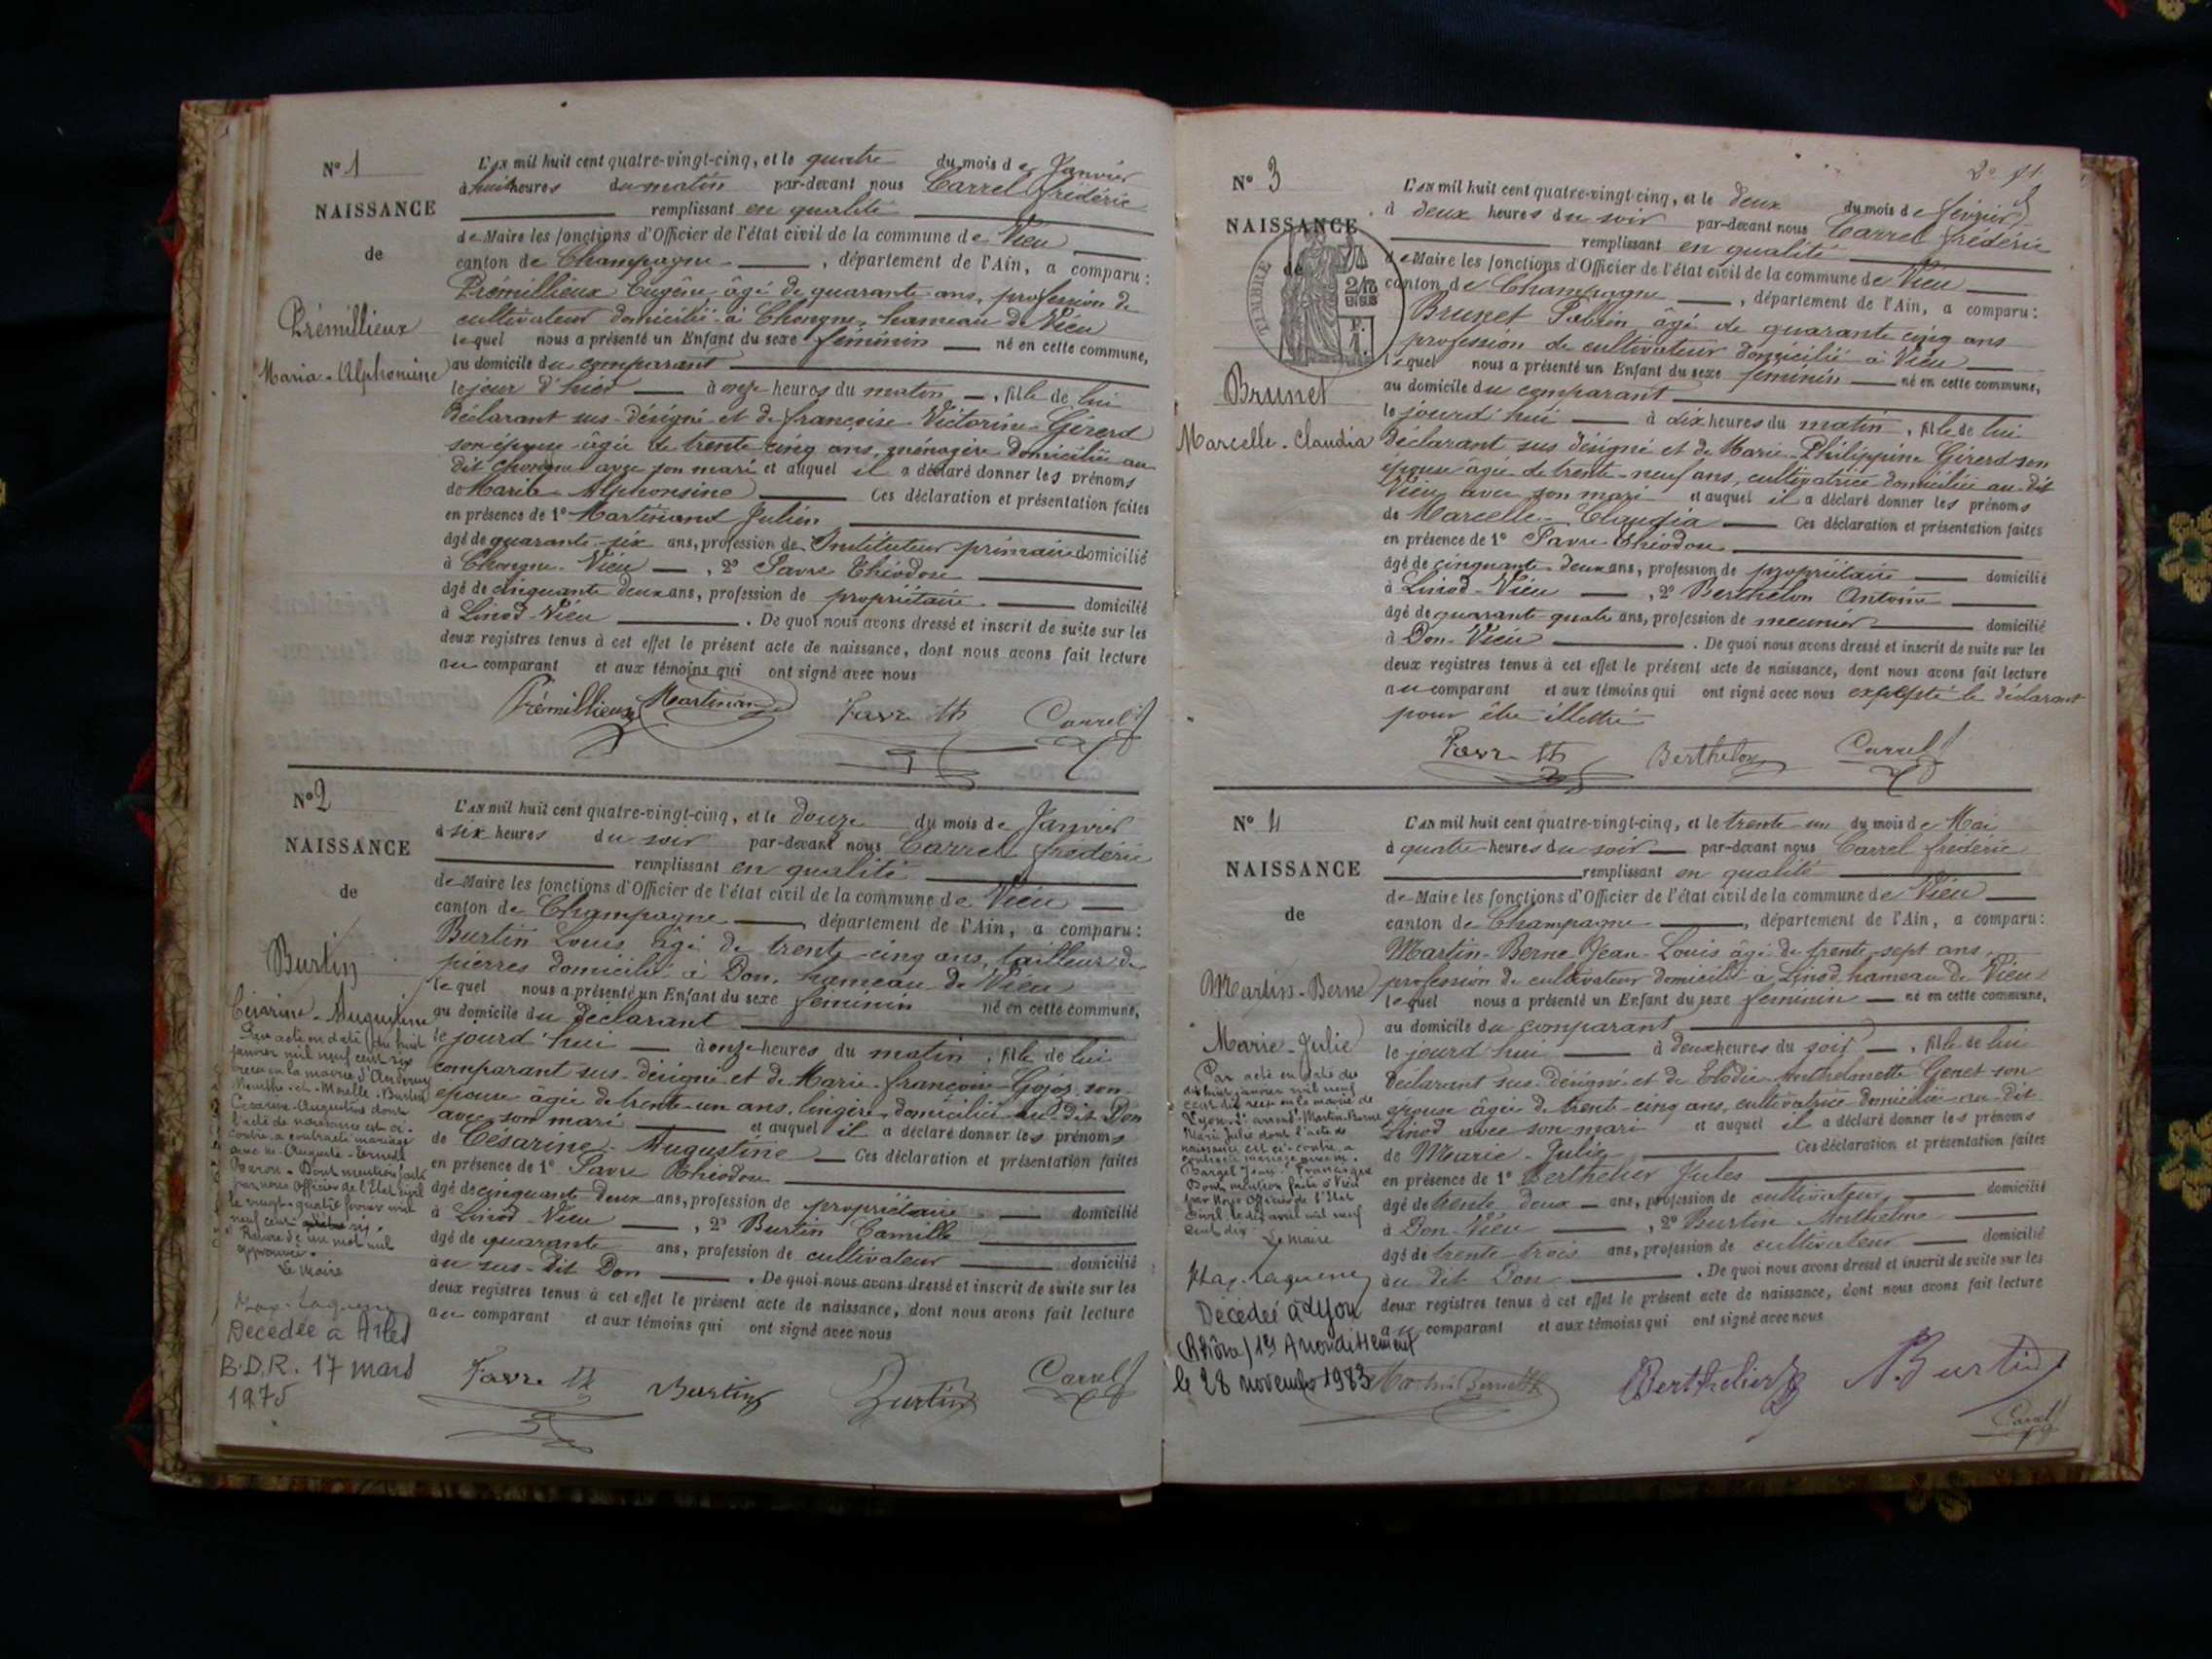 N° 1
NAISSANCE
de
Prémillieux
Maria-Alphonsine
L'AN mil huit cent quatre-vingt-cinq, et le quatre du mois de Janvier
à huit heures du matin par-devant nous Carrel frédéric
remplissant en qualité
de Maire les fonctions d'Officier de l'état civil de la commune de Vieu
canton de Champagne, département de l'Ain, a comparu:
Prémillieux Eugène âgé de quarante ans, profession de
cultivateur domicilié à Chongne, hameau de Vieu
lequel nous a présenté un Enfant du sexe féminin né en cette commune,
au domicile du comparant
le jour d'hier à onze heures du matin, fille de lui
déclarant sus-désigné et de françoise Victorine Gérerd
son épouse âgée de trente cinq ans, ménagère domiciliée au
dit Chongne avec son mari et auquel il a déclaré donner les prénoms
de Maria-Alphonsine Ces déclaration et présentation faites
en présence de 1° Martinand Julien
âgé de quarante-six ans, profession de Instituteur primaire domicilié
à Chongne-Vieu, 2° Favre Théodore
âgé de cinquante deux ans, profession de propriétaire domicilié
à Linod-Vieu. De quoi nous avons dressé et inscrit de suite sur les
deux registres tenus à cet effet le présent acte de naissance, dont nous avons fait lecture
au comparant et aux témoins qui ont signé avec nous
Prémillieux Martinand Favre th Carrel f
N° 2
NAISSANCE
de
Burtin
Césarine-Augustine
Par acte en date du huit
janvier mil neuf cent six
reçu en la mairie d'
Meurthe-et-Moselle-Burtin
Césarine-Augustine dont
l'acte de naissance est ci-
contre a contracté mariage
avec M. Auguste-Ernest
Dont mention faite
par nous Officier de l'Etat civil
le vingt-quatre février mil
neuf cent six.
Rature de un mot nul
approuvée.
Le Maire
Décédée à Arles
B.D.R. 17 mars
1975
L'AN mil huit cent quatre-vingt-cinq, et le douze du mois de Janvier
à six heures du soir par-devant nous Carrel frédéric
remplissant en qualité
de Maire les fonctions d'Officier de l'état civil de la commune de Vieu
canton de Champagne, département de l'Ain, a comparu:
Burtin Louis âgé de trente-cinq ans, tailleur de
pierres domicilié à Don, hameau de Vieu
lequel nous a présenté un Enfant du sexe féminin né en cette commune,
au domicile du déclarant
le jourd'hui à onze heures du matin, fille de lui
comparant sus-désigné et de Marie-françoise Gojoz son
épouse âgée de trente-un ans, lingère domiciliée au-dit Don
avec son mari et auquel il a déclaré donner les prénoms
de Césarine-Augustine Ces déclaration et présentation faites
en présence de 1° Favre Théodore
âgé de cinquante-deux ans, profession de propriétaire domicilié
à Linod-Vieu, 2° Burtin Camille
âgé de quarante ans, profession de cultivateur domicilié
au sus-dit Don. De quoi nous avons dressé et inscrit de suite sur les
deux registres tenus à cet effet le présent acte de naissance, dont nous avons fait lecture
au comparant et aux témoins qui ont signé avec nous
Favre th Burtin Burtin Carrel f
N° 3
NAISSANCE
de
TIMBRE
Brunet
Marcelle-Claudia
L'AN mil huit cent quatre-vingt-cinq, et le deux du mois de février
à deux heures du soir par-devant nous Carrel frédéric
remplissant en qualité
de Maire les fonctions d'Officier de l'état civil de la commune de Vieu
canton de Champagne, département de l'Ain, a comparu:
Brunet âgé de quarante cinq ans
profession de cultivateur domicilié à Vieu
lequel nous a présenté un Enfant du sexe féminin né en cette commune,
au domicile du comparant
le jourd'hui à dix heures du matin, fille de lui
déclarant sus désigné et de Marie-Philippine Gérerd son
épouse âgée de trente-neuf ans, cultivatrice domiciliée au-dit
Vieu avec son mari et auquel il a déclaré donner les prénoms
de Marcelle-Claudia Ces déclaration et présentation faites
en présence de 1° Favre Théodore
âgé de cinquante-deux ans, profession de propriétaire domicilié
à Linod-Vieu, 2° Berthelon Antoine
âgé de quarante-quatre ans, profession de meunier domicilié
à Don-Vieu. De quoi nous avons dressé et inscrit de suite sur les
deux registres tenus à cet effet le présent acte de naissance, dont nous avons fait lecture
au comparant et aux témoins qui ont signé avec nous excepté le déclarant
pour être illettré
Favre th Berthelon Carrel f
N° 4
NAISSANCE
de
Martin-Berne
Marie-Julie
Par acte en date du
dix huit janvier mil neuf
cent dix reçu en la mairie de
Lyon Martin-Berne
Marie Julie dont l'acte de
naissance est ci-contre a
contracté mariage avec M.
Dont mention faite à Vieu
par Nous Officier de l'Etat
Civil le dix avril mil neuf
cent dix
Le Maire
Décédée à Lyon
(Rhône) 1er Arrondissement
le 28 novembre 1983
L'AN mil huit cent quatre-vingt-cinq, et le trente-un du mois de Mai
à quatre heures du soir par-devant nous Carrel frédéric
remplissant en qualité
de Maire les fonctions d'Officier de l'état civil de la commune de Vieu
canton de Champagne, département de l'Ain, a comparu:
Martin-Berne Jean-Louis âgé de trente-sept ans,
profession de cultivateur domicilié à Linod hameau de Vieu
lequel nous a présenté un Enfant du sexe féminin né en cette commune,
au domicile du comparant
le jourd'hui à deux heures du soir, fille de lui
déclarant sus-désigné et de Elodie Anthelmette Genet son
épouse âgée de trente-cinq ans, cultivatrice domiciliée au-dit
Linod avec son mari et auquel il a déclaré donner les prénoms
de Marie-Julie Ces déclaration et présentation faites
en présence de 1° Berthelier Jules
âgé de trente-deux ans, profession de cultivateur domicilié
à Don-Vieu, 2° Burtin Anthelme
âgé de trente-trois ans, profession de cultivateur domicilié
au dit Don. De quoi nous avons dressé et inscrit de suite sur les
deux registres tenus à cet effet le présent acte de naissance, dont nous avons fait lecture
au comparant et aux témoins qui ont signé avec nous
Berthelier A. Burtin
Carrel f